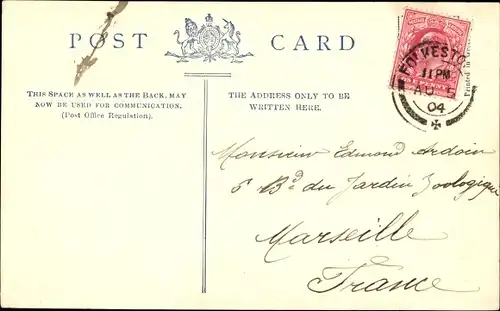 POST CARD
THIS SPACE AS WELL AS THE BACK, MAY
NOW BE USED FOR COMMUNICATION.
(Post Office Regulation).
THE ADDRESS ONLY TO BE
WRITTEN HERE.
FOLKESTO
11 PM
AU
04
Printed in
Monsieur Edmond Ardoin
6 Bd du Jardin Zoologique
Marseille
France